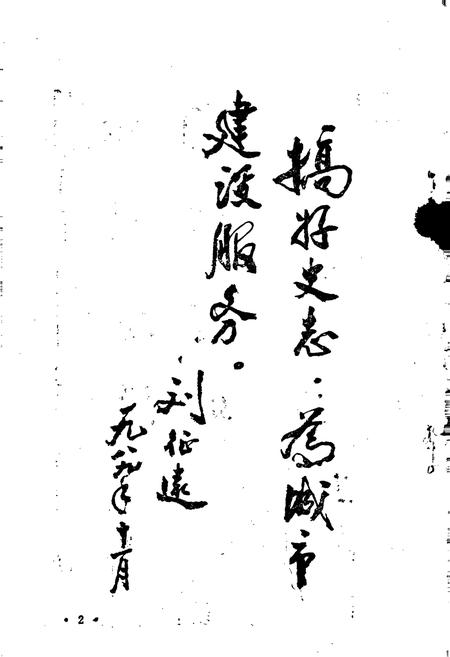 搞好史志,为城市
建设服务。
刘征远
一九八九年十一月
· 2 ·